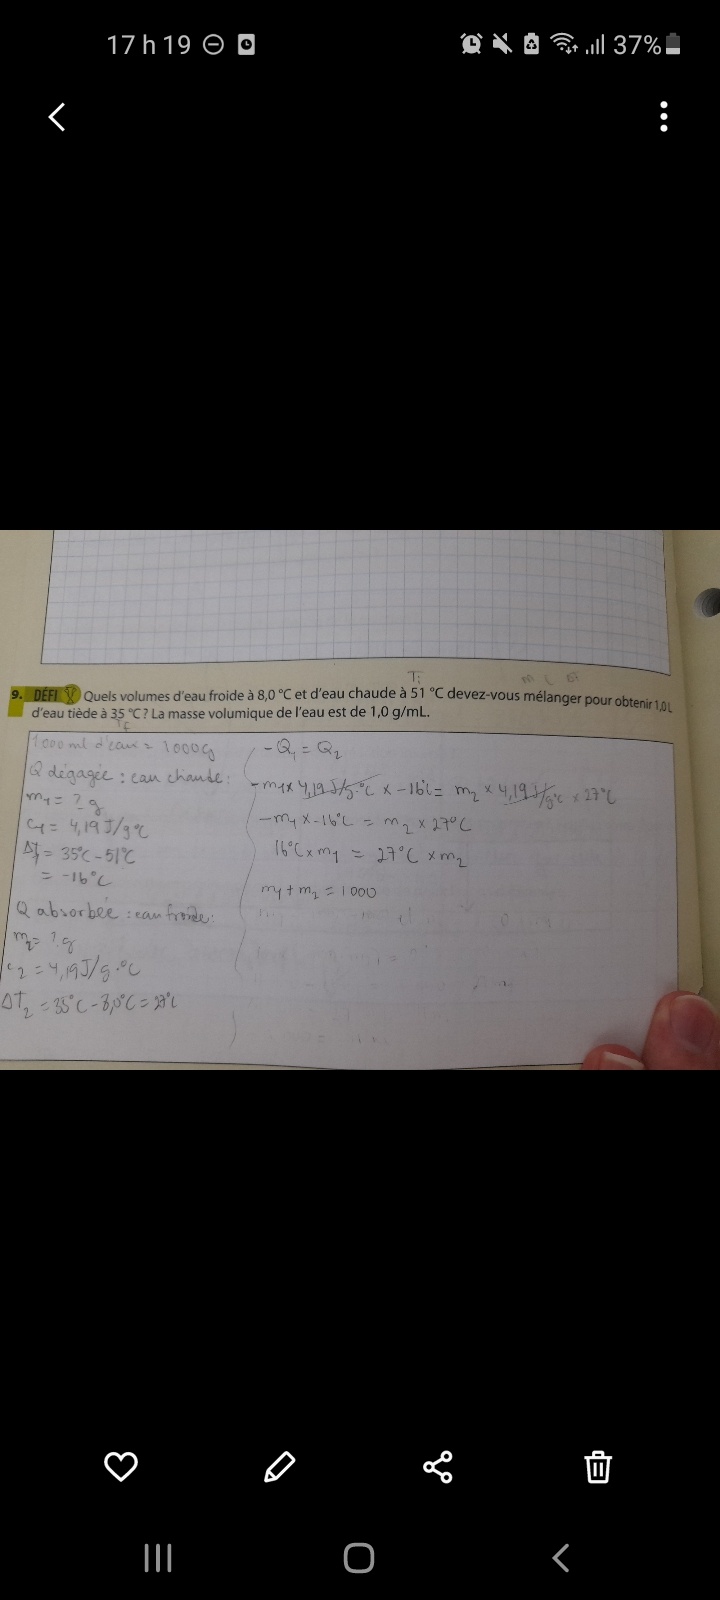 17 h 19
37%
Ti
m L Et
9. DÉFI Quels volumes d'eau froide à 8,0 °C et d'eau chaude à 51 °C devez-vous mélanger pour obtenir 1,0 L
d'eau tiède à 35 °C? La masse volumique de l'eau est de 1,0 g/mL.
Tf
1000 ml d'eau = 1000g
Q dégagée : eau chaude :
m1 = ? g
c1 = 4,19 J/g°C
ΔT = 35°C - 51°C
= -16°C
Q absorbée : eau froide :
m2 = ? g
c2 = 4,19 J/g·°C
ΔT2 = 35°C - 8,0°C = 27°C
-Q1 = Q2
-m1 x 4,19 J/g·°C x -16°C = m2 x 4,19 J/g°C x 27°C
-m1 x -16°C = m2 x 27°C
16°C x m1 = 27°C x m2
m1 + m2 = 1000